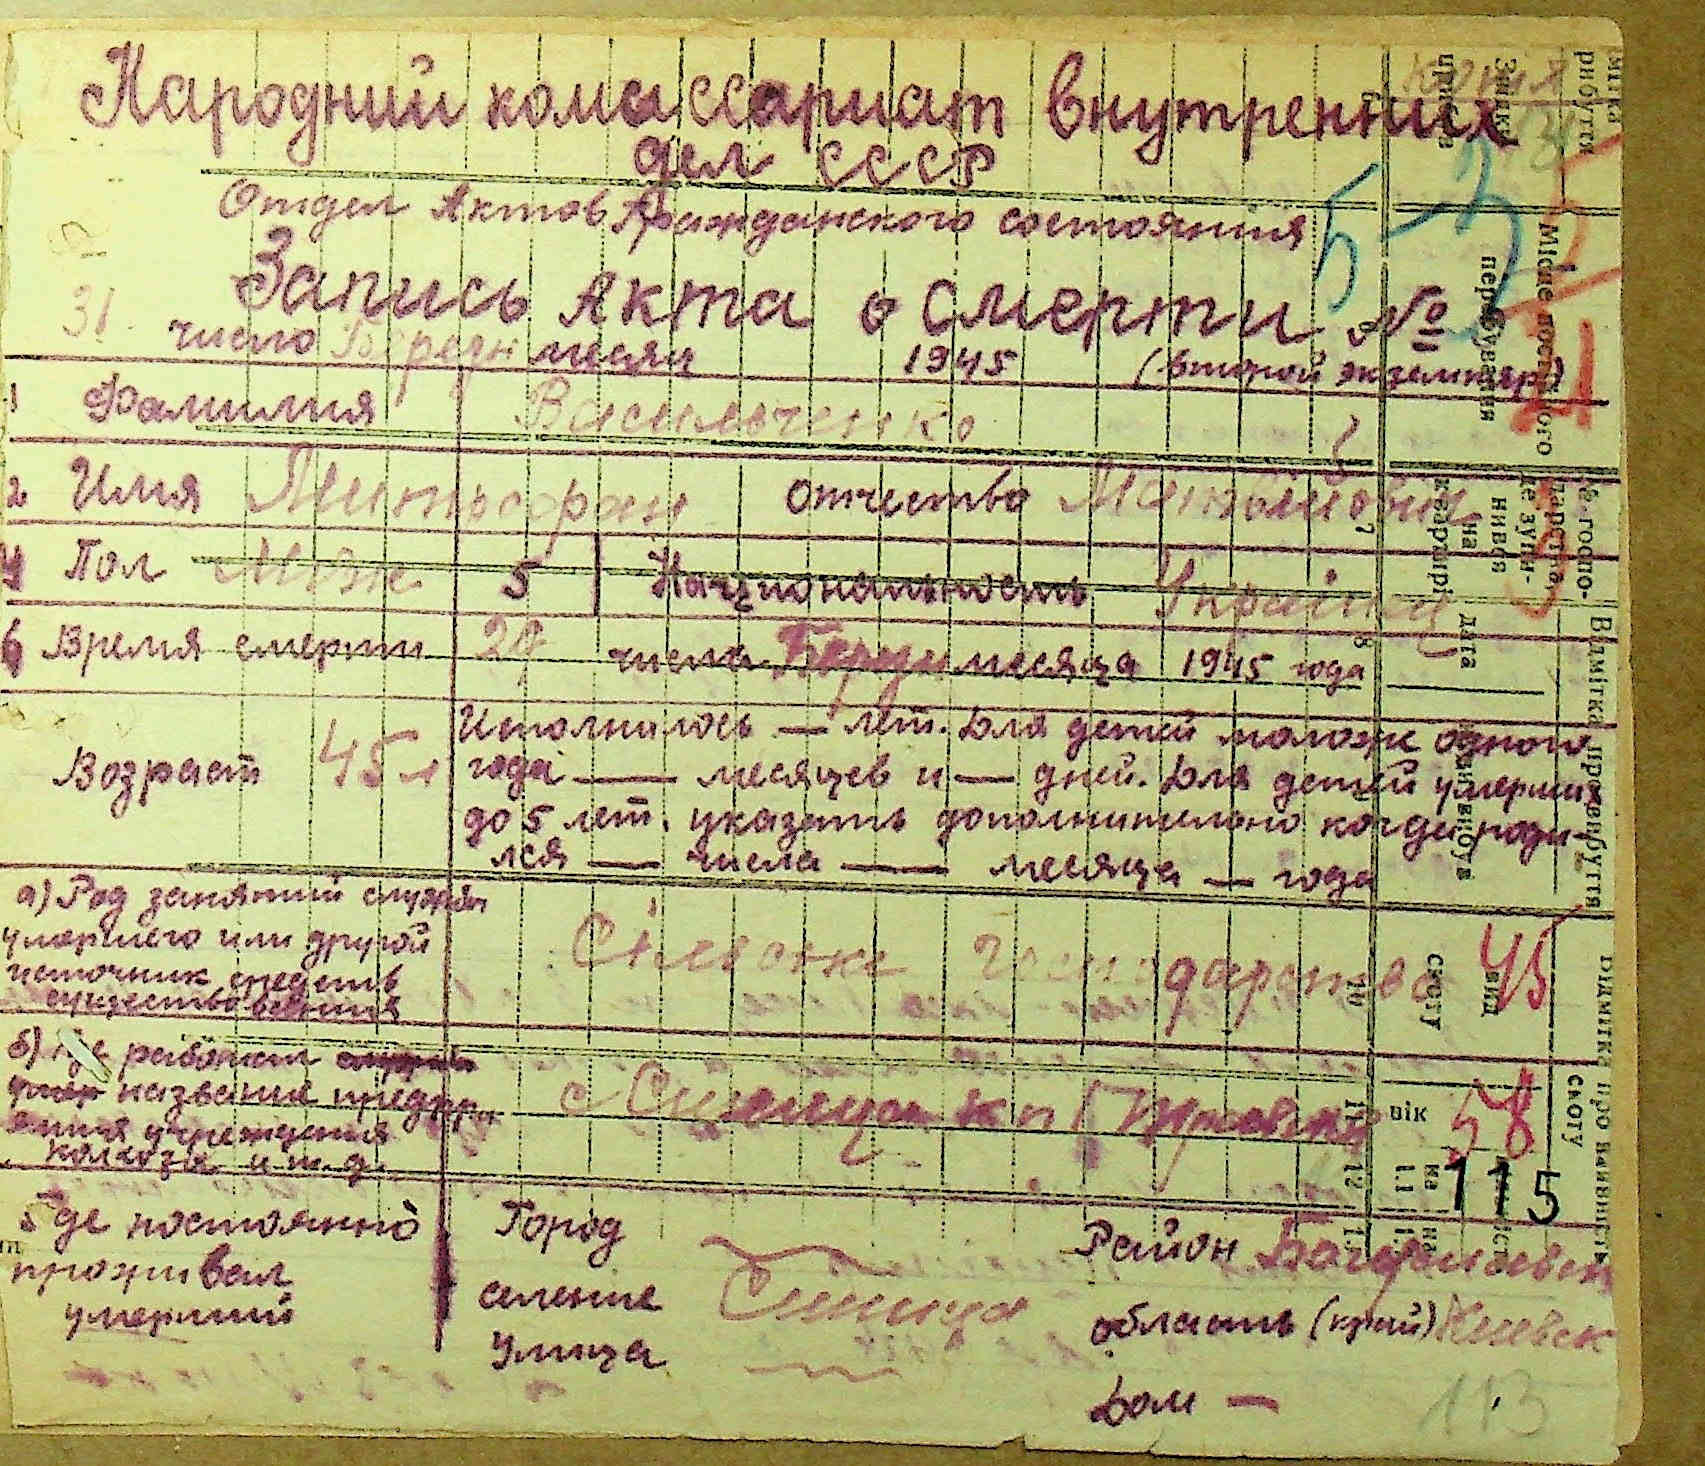 Народний комиссариат внутренних
дел СССР
Отдел Актов Гражданского состояния
5-
Запись Акта о смерти №
31 число Березн месяц 1945 (второй экземпляр)
1 Фамилия Васильченко
2 Имя Митрофан отчество
4 Пол Муж 5 Национальность Українец
6 Время смерти числа месяца 1945 года
Возраст 45 л
Исполнилось — лет. Для детей моложе одного
года — месяцев и — дней. Для детей умерших
до 5 лет. указать дополнительно когда роди-
лся — числа — месяца — года
а) Род занятий служби
умершего или другой
источник средств
существования
Сільське господарство
б) Где работал
название предпри
ятия учреждения
колхоза и т.д.
с Синиця к п
Где постоянно
проживал
умерший
Город
селение Синиця
Улица
Район
область (край) Киевск
Дом —
113
копія
мітка
рибуття
Місце постійного
перебування
на
дата
Відмітка
45
вид
скоту
вік
58
скоту
115
Відмітка про наявність
7
8
10
11
12